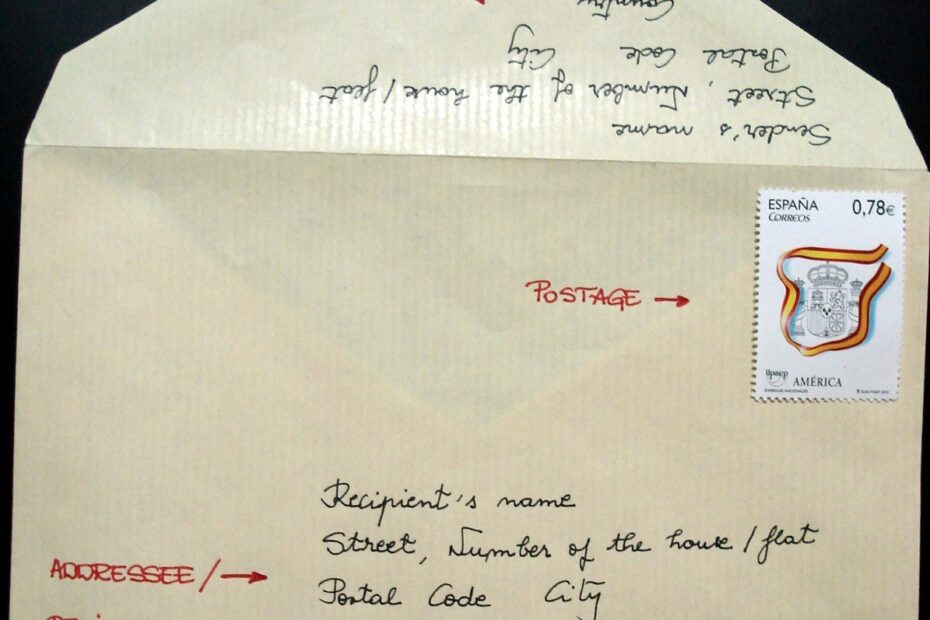 Sender's name
Street, Number of the house/flat
Postal Code City
Country
ESPAÑA 0,78€
CORREOS
POSTAGE →
upaep AMÉRICA
SÍMBOLOS NACIONALES
Recipient's name
Street, Number of the house/flat
ADDRESSEE/ →
Postal Code City